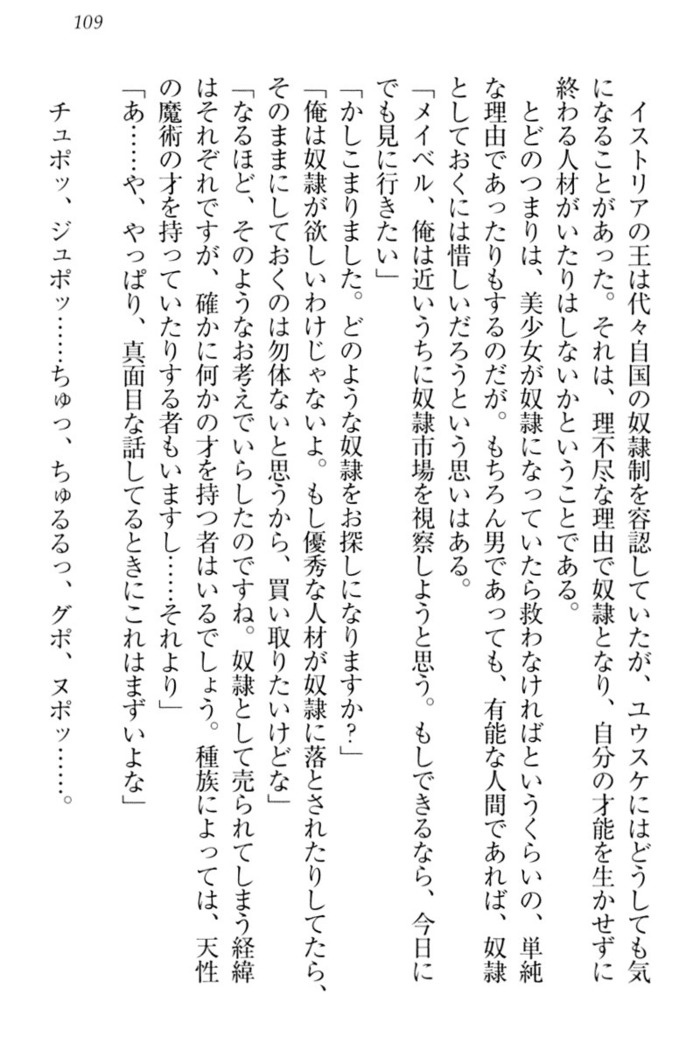 109
イストリアの王は代々自国の奴隷制を容認していたが、ユウスケにはどうしても気
になることがあった。それは、理不尽な理由で奴隷となり、自分の才能を生かせずに
終わる人材がいたりはしないかということである。
とどのつまりは、美少女が奴隷になっていたら救わなければというくらいの、単純
な理由であったりもするのだが。もちろん男であっても、有能な人間であれば、奴隷
としておくには惜しいだろうという思いはある。
「メイベル、俺は近いうちに奴隷市場を視察しようと思う。もしできるなら、今日に
でも見に行きたい」
「かしこまりました。どのような奴隷をお探しになりますか？」
「俺は奴隷が欲しいわけじゃないよ。もし優秀な人材が奴隷に落とされたりしてたら、
そのままにしておくのは勿体ないと思うから、買い取りたいけどな」
「なるほど、そのようなお考えでいらしたのですね。奴隷として売られてしまう経緯
はそれぞれですが、確かに何かの才を持つ者はいるでしょう。種族によっては、天性
の魔術の才を持っていたりする者もいますし……それより」
「あ……や、やっぱり、真面目な話してるときにこれはまずいよな」
チュポッ、ジュポッ……ちゅっ、ちゅるるっ、グポ、ヌポッ……。